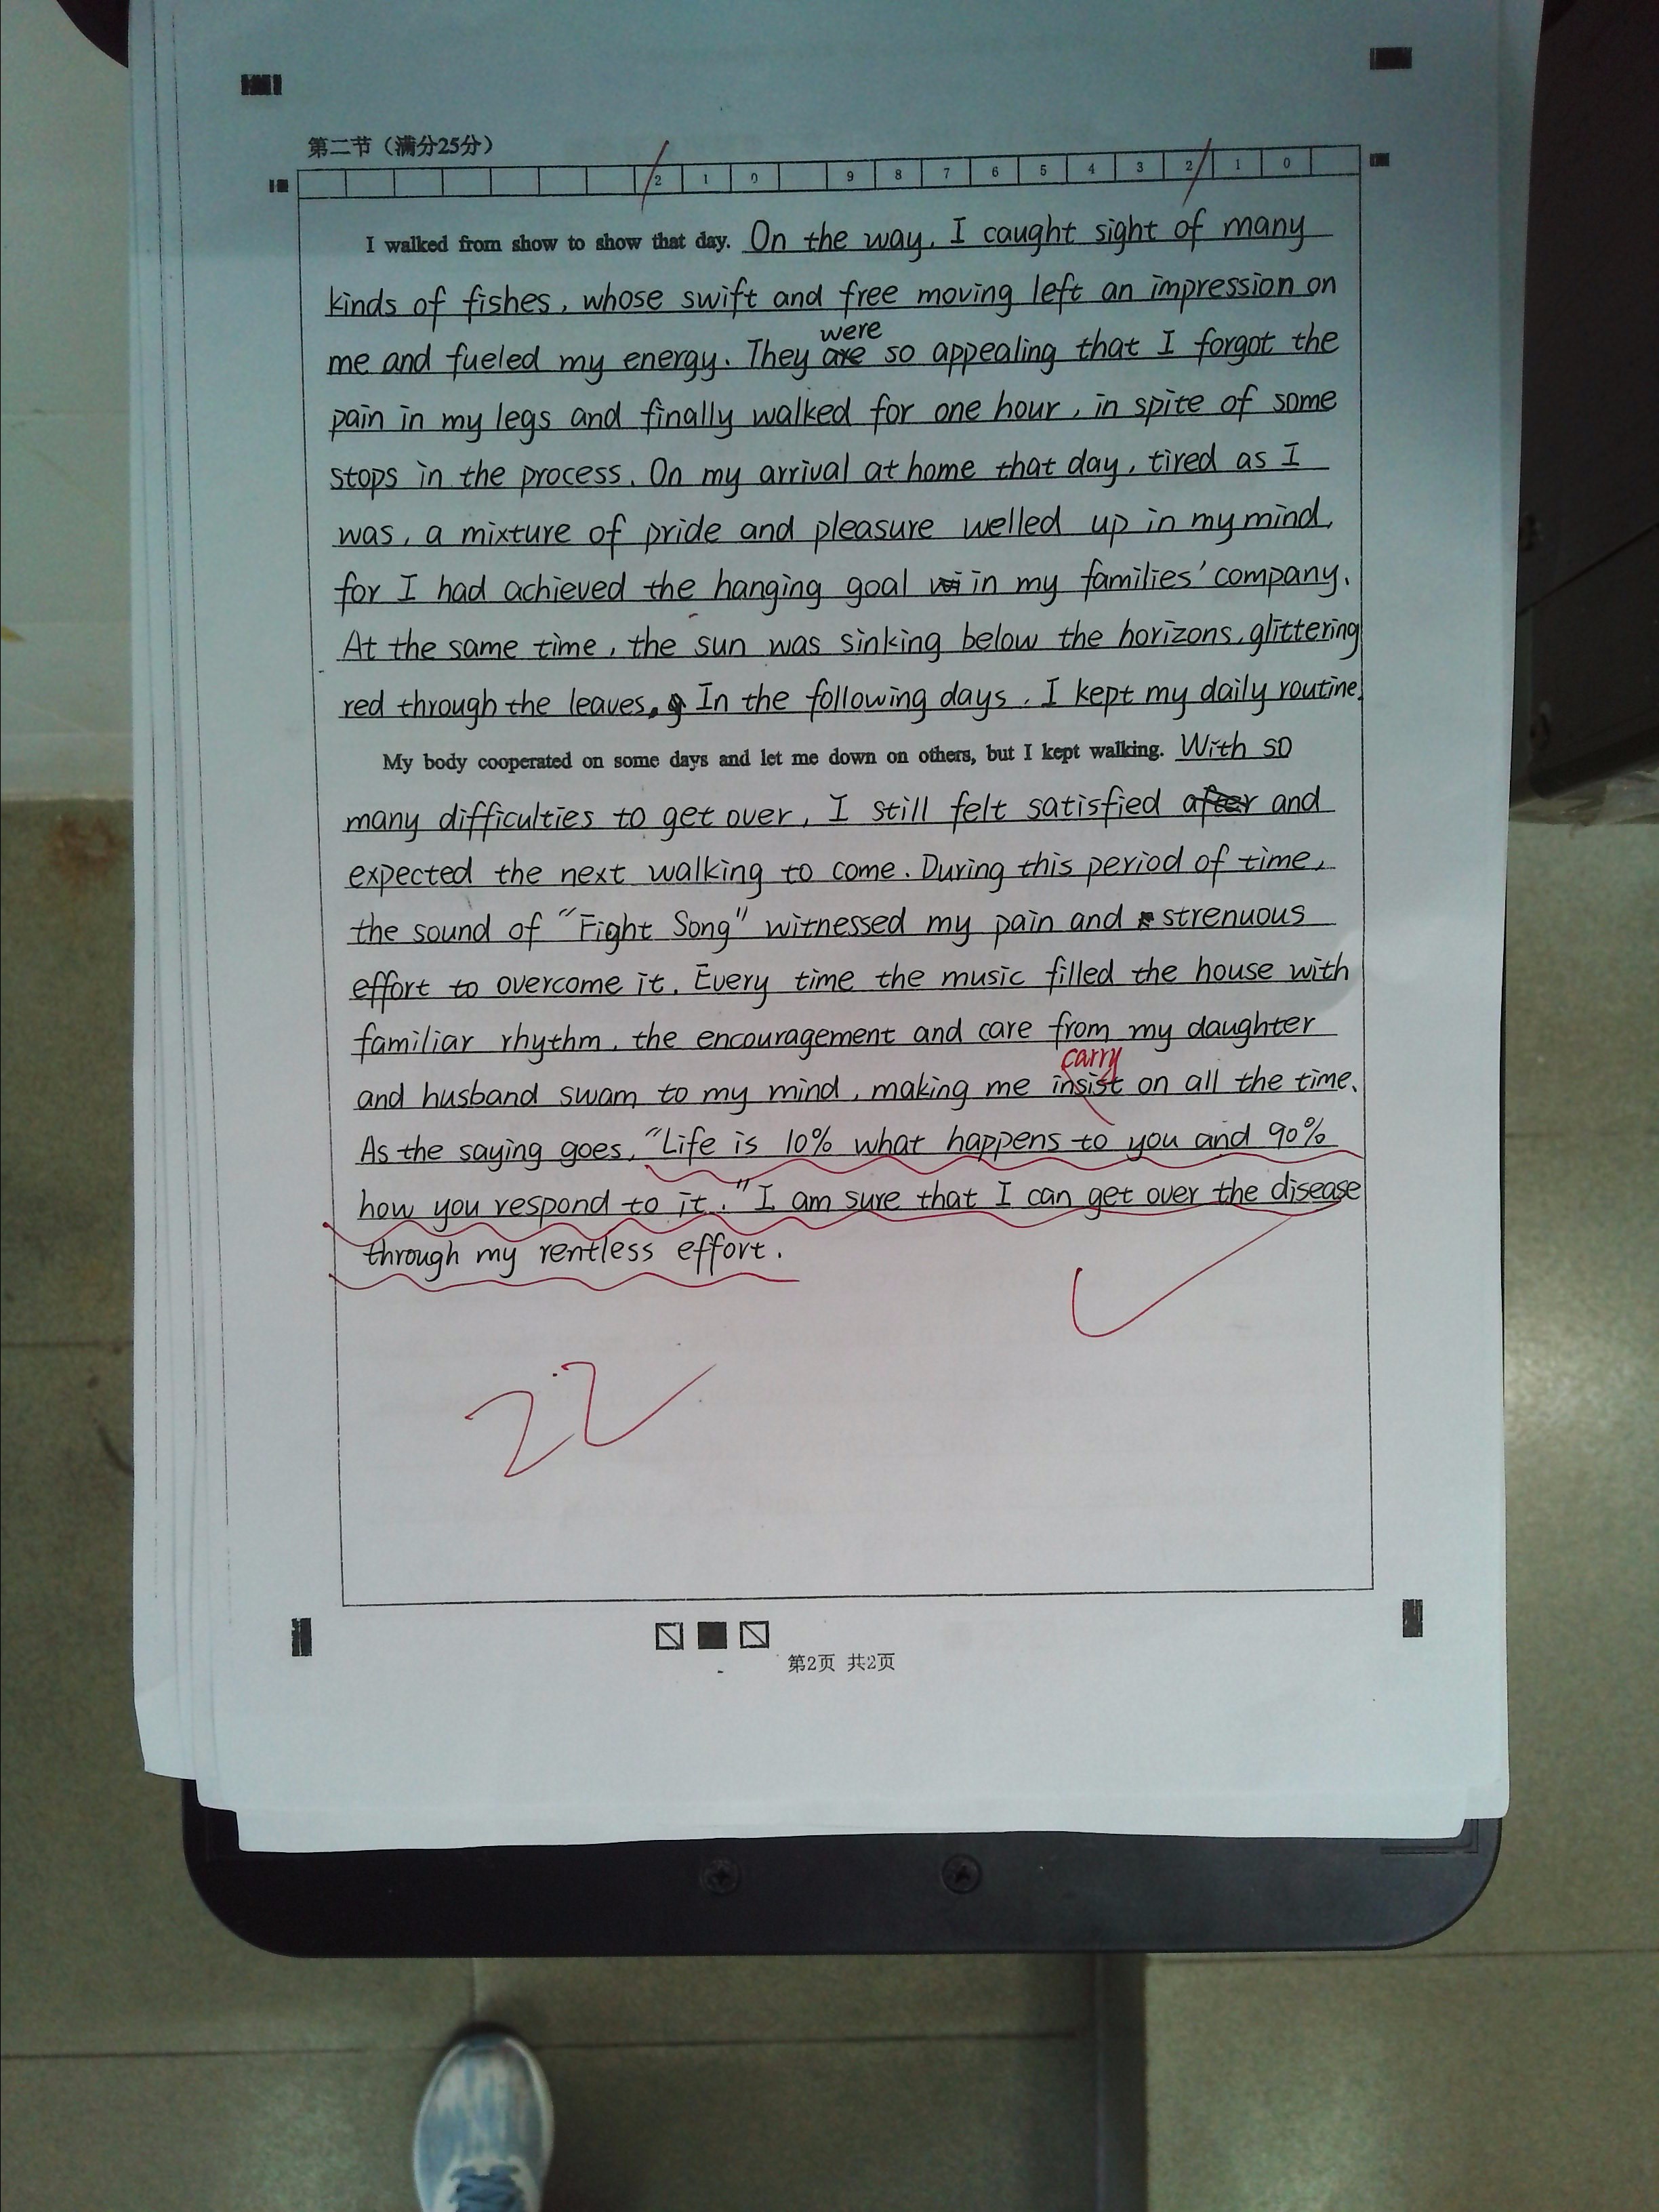 第二节（满分25分）
2 1 0 9 8 7 6 5 4 3 2 1 0
I walked from show to show that day. On the way, I caught sight of many
kinds of fishes, whose swift and free moving left an impression on
were
me and fueled my energy. They are so appealing that I forgot the
pain in my legs and finally walked for one hour, in spite of some
stops in the process. On my arrival at home that day, tired as I
was, a mixture of pride and pleasure welled up in my mind,
for I had achieved the hanging goal in my families' company.
At the same time, the sun was sinking below the horizons, glittering
red through the leaves. In the following days, I kept my daily routine.
My body cooperated on some days and let me down on others, but I kept walking. With so
many difficulties to get over, I still felt satisfied after and
expected the next walking to come. During this period of time,
the sound of "Fight Song" witnessed my pain and strenuous
effort to overcome it. Every time the music filled the house with
familiar rhythm, the encouragement and care from my daughter
carry
and husband swam to my mind, making me insist on all the time.
As the saying goes, "Life is 10% what happens to you and 90%
how you respond to it." I am sure that I can get over the disease
through my rentless effort.
22
第2页 共2页